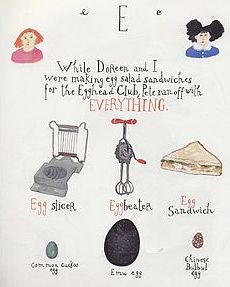 e E e
While Doreen and I
were making egg salad sandwiches
for the Egghead Club, Pete ran off with
EVERYTHING.
Egg slicer
Eggbeater
Egg
Sandwich
Common cuckoo
egg
Emu egg
Chinese
Bulbul
egg